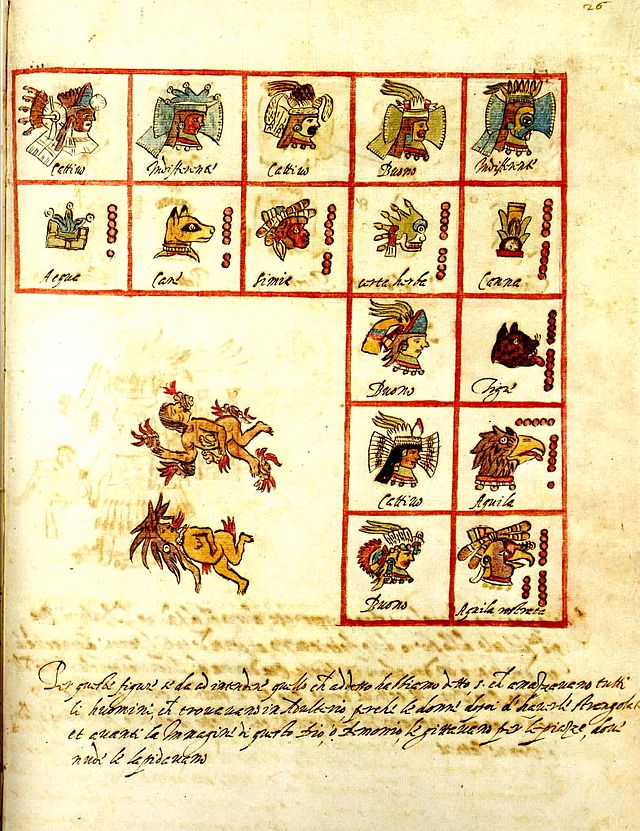 26
Cattivo Indifferente Cattivo Buono Indifferente
Acqua Cane Simia certa herba Canna
Buono Tigre
Cattivo Aquila
Buono Aquila
Per queste figure se da ad intendere quello ch' habbiamo detto s. ch' amazzavano tutti
li huomini, ch' trovavano in Adulterio, perche le donne dopoi d' haverle strangolate
et avanti la Immagine di questo Dio, o Demonio, le gittavano per le piazze, dove
nude le lapidavano